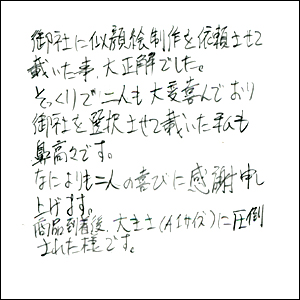 御社に似顔絵制作を依頼させて
戴いた事、大正解でした。
そっくりで二人も大変喜んでおり
御社を選択させて戴いた私も
鼻高々です。
なによりも二人の喜びに感謝申し
上げます。
商品到着後、大きさ(A1サイズ)に圧倒
された様です。